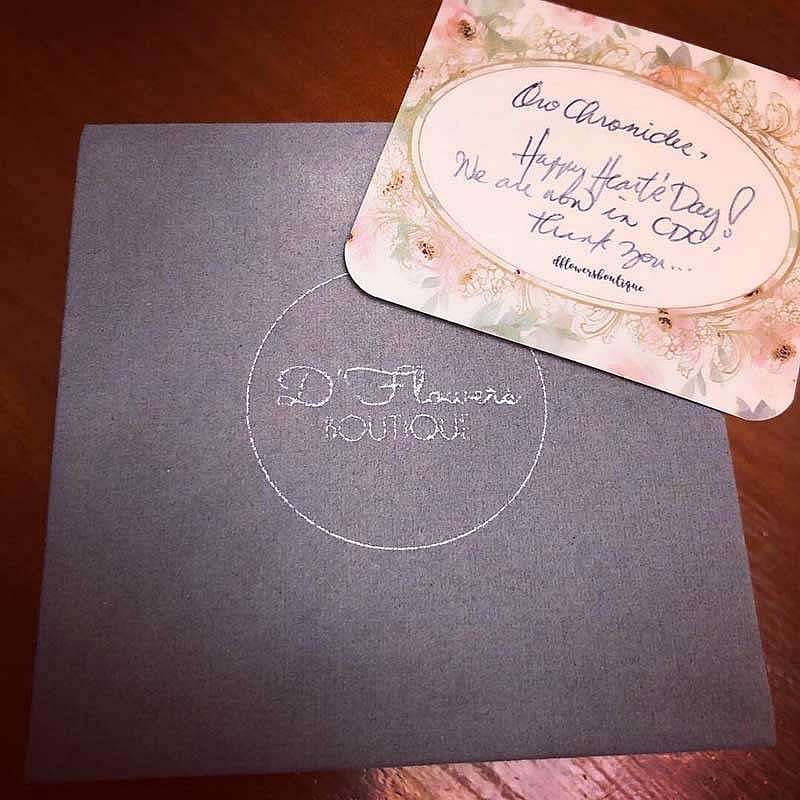 Oro Chronicles,
Happy Heart's Day!
We are now in CDO,
Thank you...
dflowersboutique
D'Flowers
BOUTIQUE